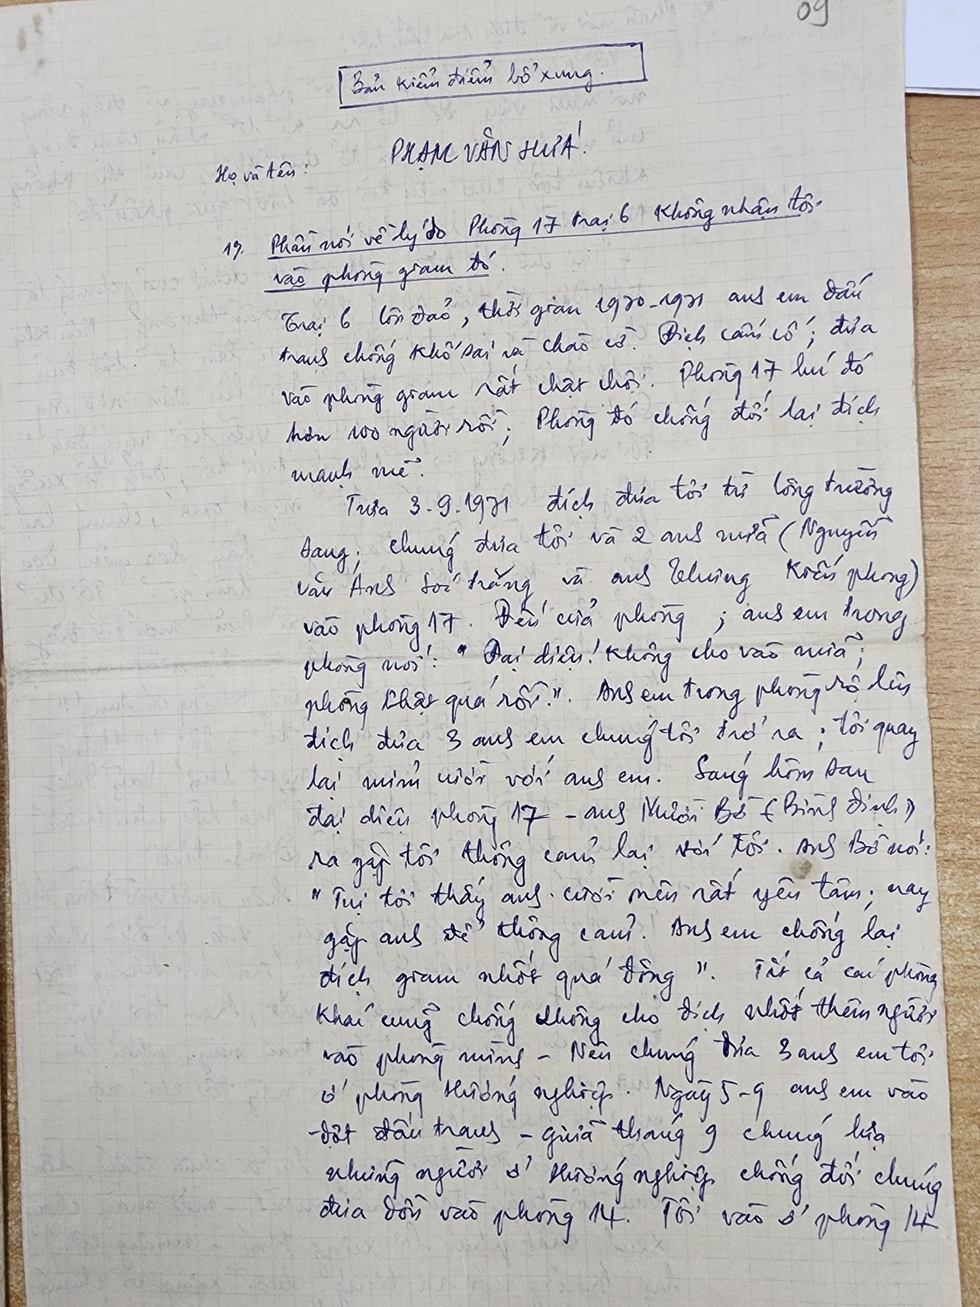 09
Bản kiểm điểm bổ xung.
Họ và tên: PHẠM VĂN HỨA!
1). Phần nói về lý do Phòng 17 trại 6 không nhận tôi
vào phòng giam đó.
Trại 6 Côn đảo, thời gian 1970-1971 anh em đấu
tranh chống khổ sai và chào cờ. Địch cấm cố; đưa
vào phòng giam rất chật chội. Phòng 17 lúc đó
hơn 100 người rồi; Phòng đó chống đối lại địch
mạnh mẽ.
Trưa 3-9-1971 địch đưa tôi từ
sang. chúng đưa tôi và 2 anh nữa (Nguyễn
văn Ánh Sóc trăng và anh Kiến phong)
vào phòng 17. Đến cửa phòng; anh em trong
phòng nói: "Đại diện! Không cho vào nữa;
phòng chật quá rồi!". Anh em trong phòng rộ lên
địch đưa 3 anh em chúng tôi trở ra; tôi quay
lại mỉm cười với anh em. Sáng hôm sau
đại diện phòng 17 - anh Mười Bô (Bình định)
ra gặp tôi thông cảm lại với tôi. Anh Bô nói:
"Tụi tôi thấy anh cười nên rất yên tâm; nay
gặp anh để thông cảm. Anh em chống lại
địch giam nhốt quá đông". Tất cả các phòng
khác cũng chống không cho địch nhốt thêm người
vào phòng mình - Nên chúng đưa 3 anh em tôi
ở phòng Hướng nghiệp. Ngày 5-9 anh em vào
đợt đấu tranh - giữa tháng 9 chúng lựa
những người ở Hướng nghiệp chống đối chúng
đưa dồn vào phòng 14. Tôi vào ở phòng 14